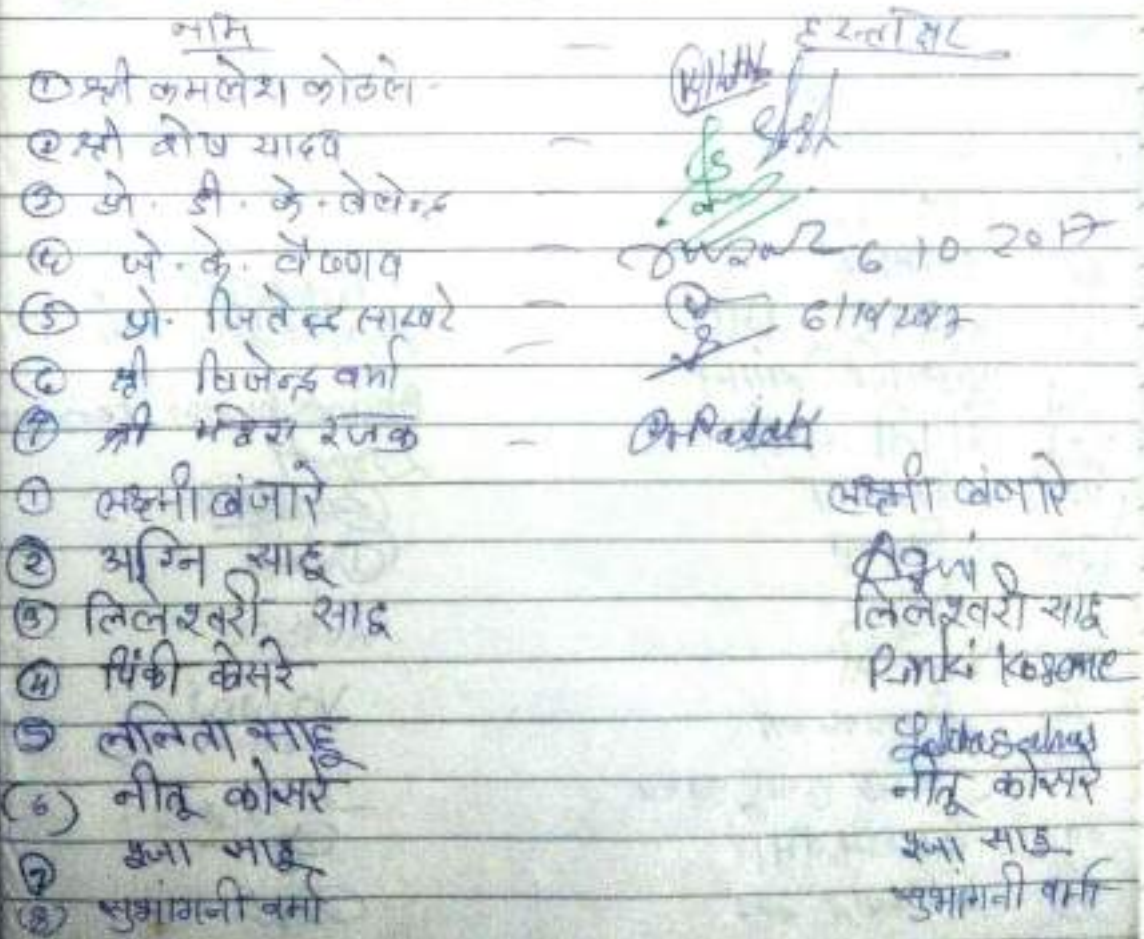 नाम - हस्ताक्षर
① श्री कमलेश कोठले -
② श्री शेष यादव -
③ प्रो. डी. के. -
④ जे. के. वैष्णव - 6 10 2017
⑤ प्रो. जितेन्द्र साखरे - 6/10/2017
⑥ श्री विजेन्द्र वर्मा -
⑦ श्री रजक -
① लक्ष्मी बंजारे लक्ष्मी बंजारे
② अग्नि साहू Agni
③ लिलेश्वरी साहू लिलेश्वरी साहू
④ पिंकी कोसरे Pinki Kosare
⑤ ललिता साहू Lalita Sahu
(6) नीतू कोसरे नीतू कोसरे
⑦ साहू साहू
⑧ सुभांगनी वर्मा सुभांगनी वर्मा